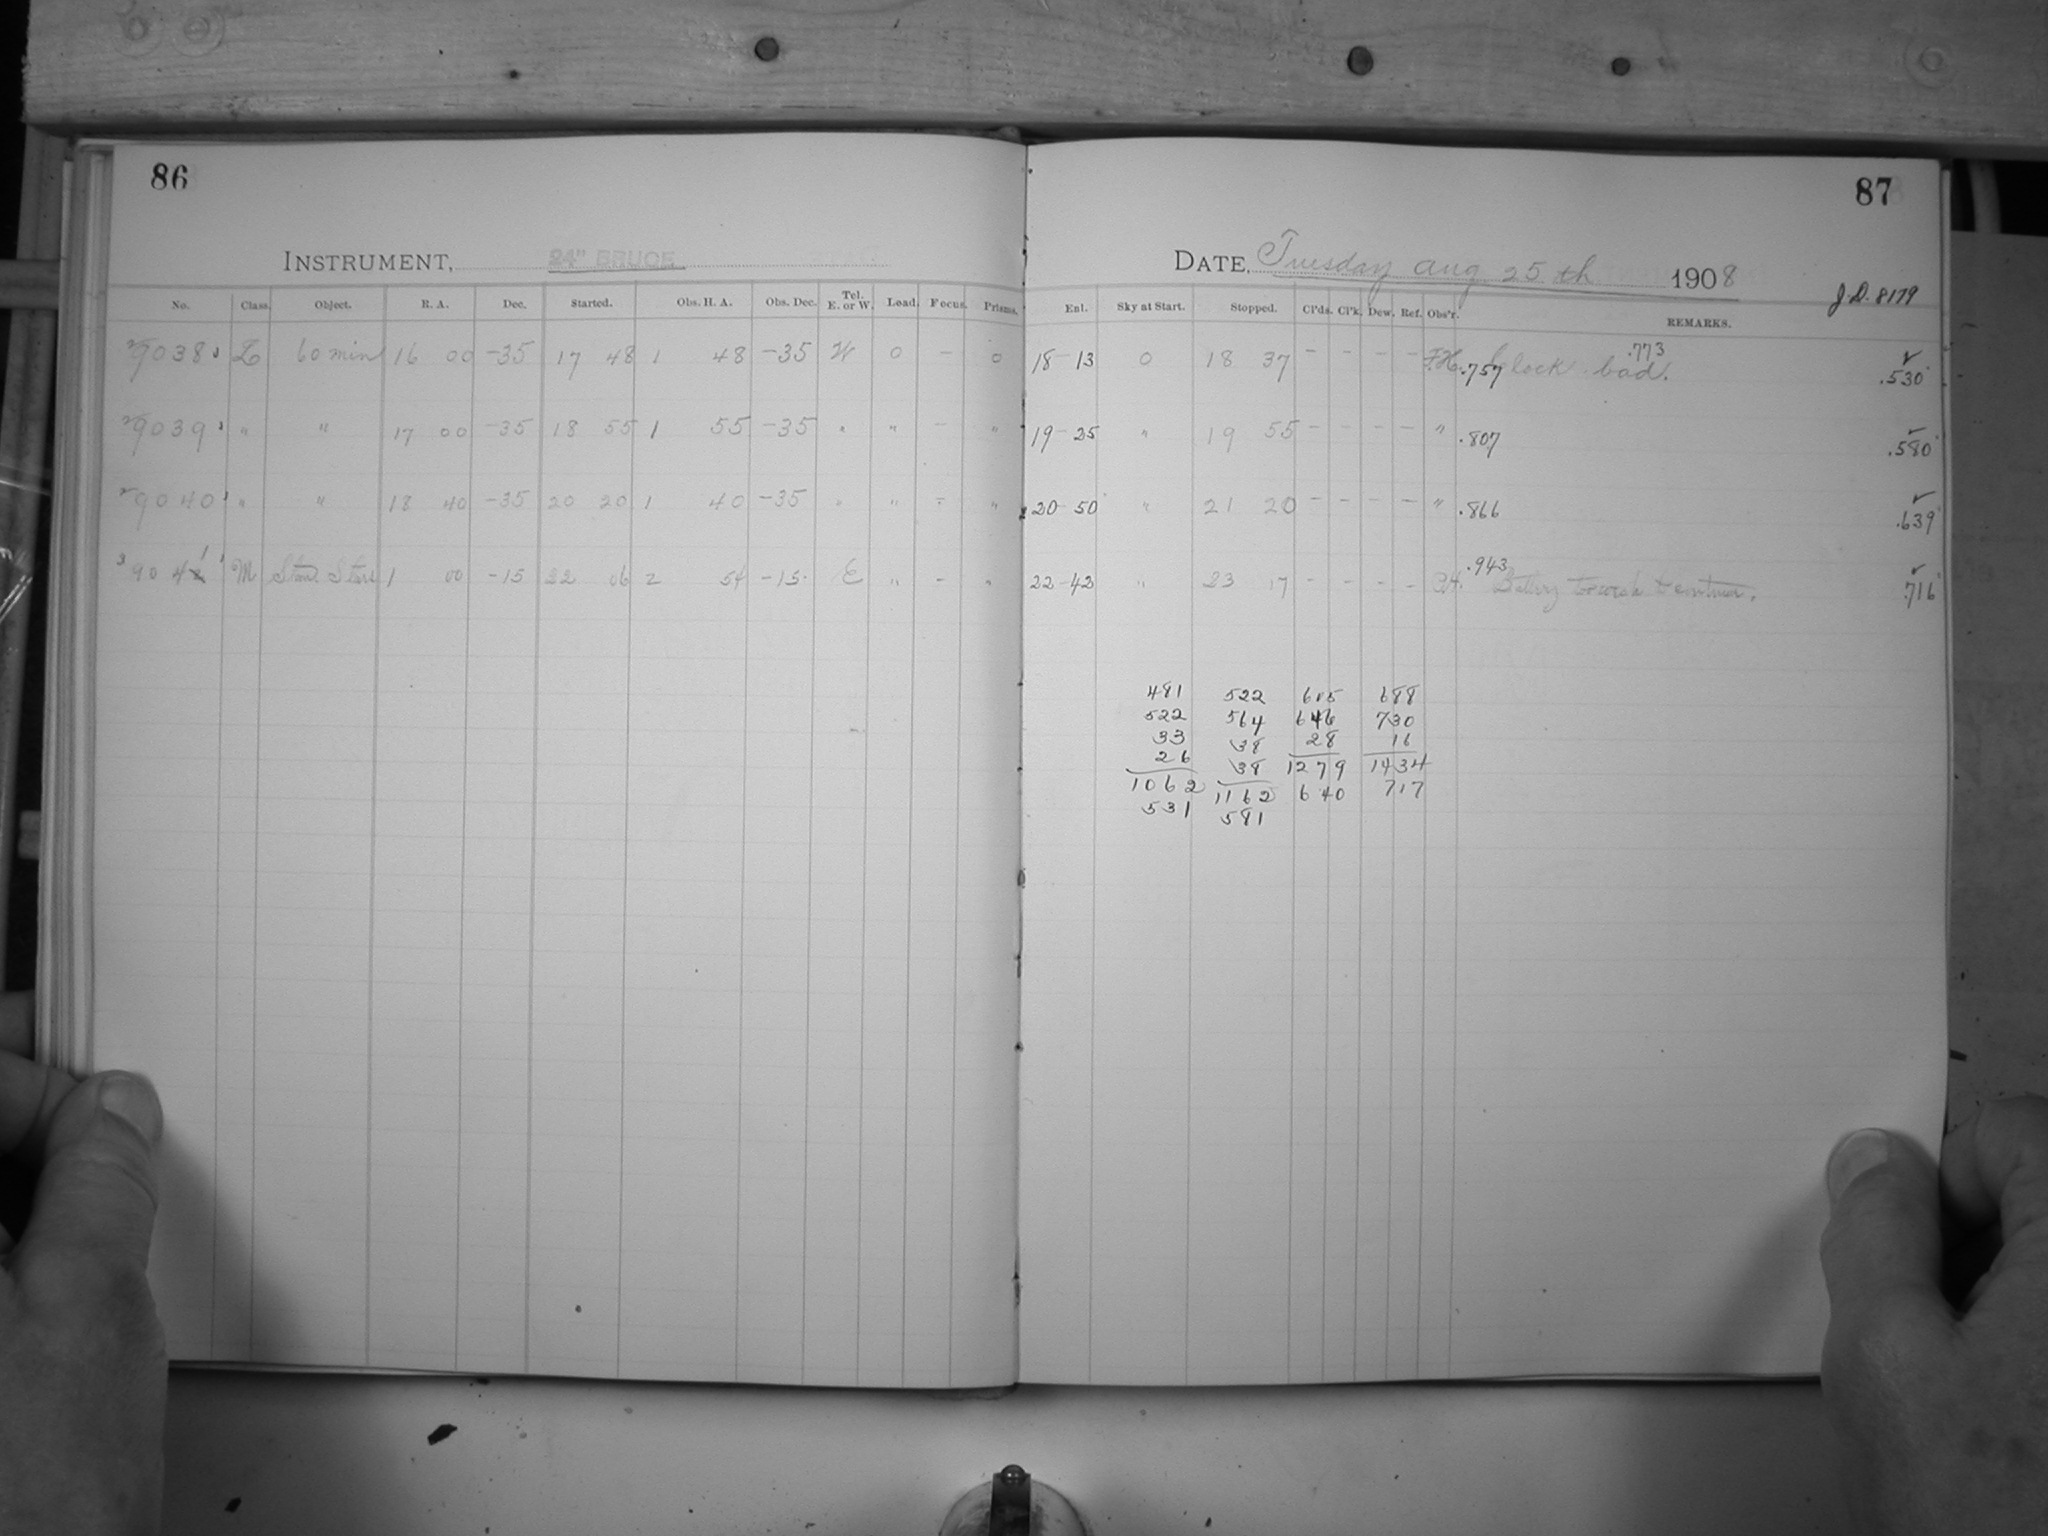 86
87
INSTRUMENT, 24" BRUCE
DATE, Tuesday Aug 25th 1908
J.D. 8179
No. Class. Object. R. A. Dec. Started. Obs. H. A. Obs. Dec. Tel. E. or W. Load. Focus. Prisms. Enl. Sky at Start. Stopped. Cl'ds. Cl'k. Dew. Ref. Obs'r. REMARKS.
9038 L 60 min 16 00 -35 17 48 1 48 -35 W 0 - 0 18-13 0 18 37 - - - - F.H. .757 Clock bad. .773 .530
9039 " " 17 00 -35 18 55 1 55 -35 " " - " 19-25 " 19 55 - - - - " .807 .580
9040 " " 18 40 -35 20 20 1 40 -35 " " - " 20-50 " 21 20 - - - - " .866 .639
9041 M Stand Stars 1 00 -15 22 06 2 54 -15 E " - " 22-42 " 23 17 - - - - .943 Battery .716
481 522 605 688
522 564 646 730
33 38 28 16
26 38 1279 1434
1062 1162 640 717
531 581